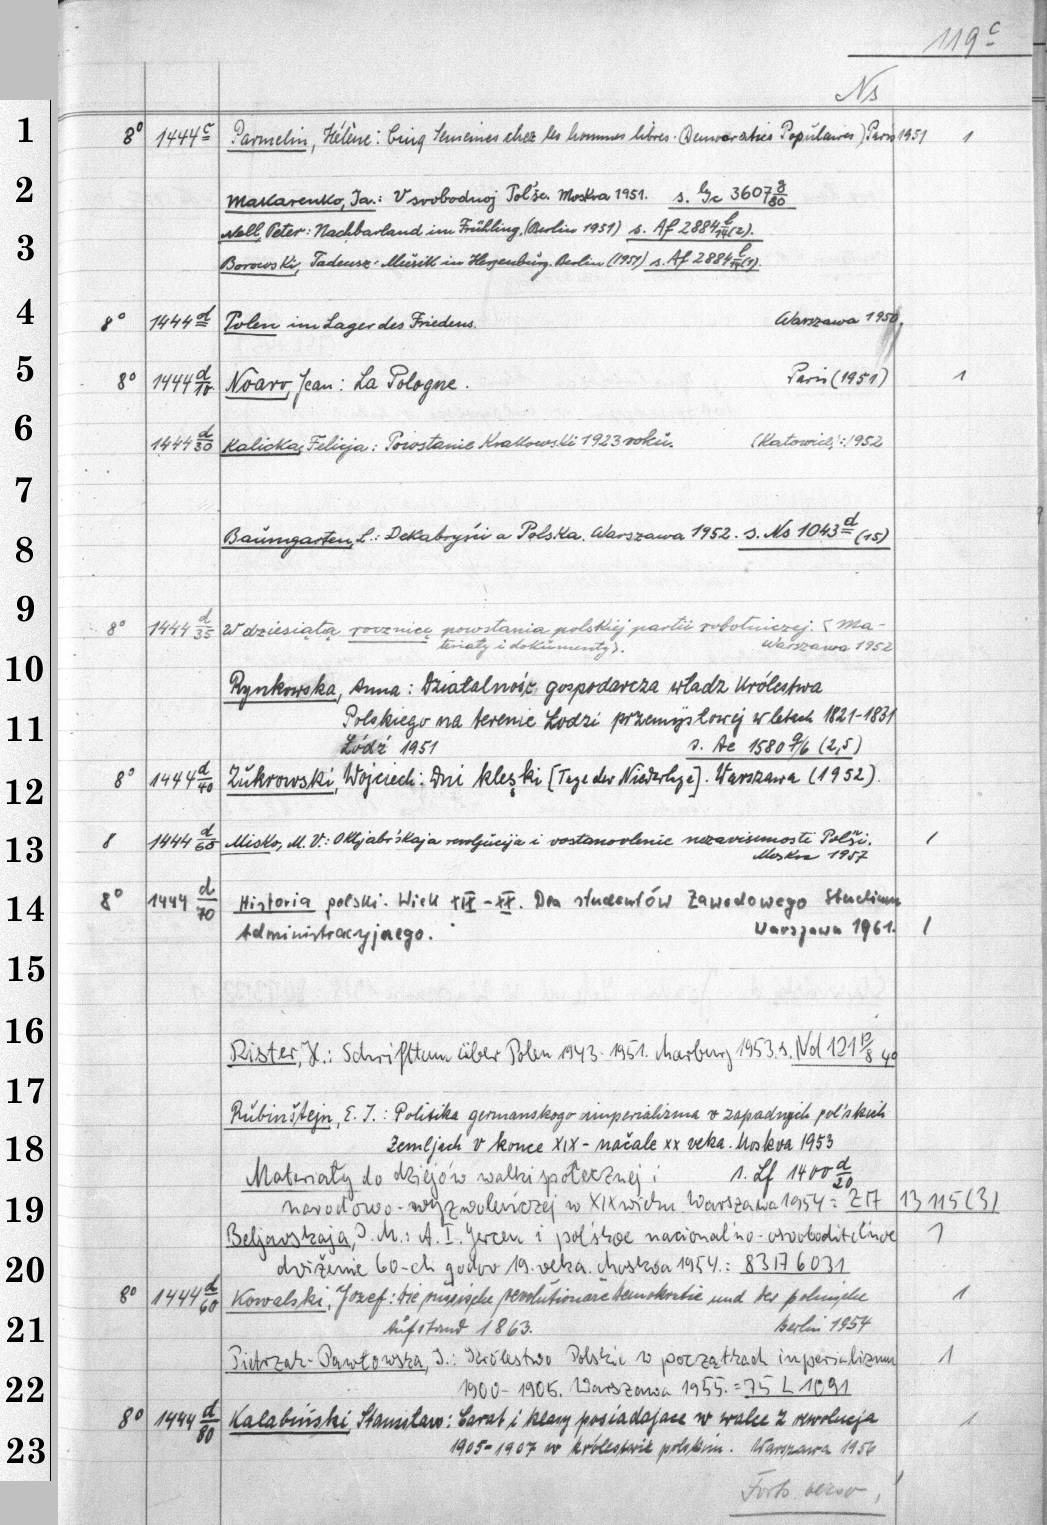 119 c
Ns
1
8° 1444 c Parmelin, Hélène: Cinq Semaines chez les hommes libres. (Democraties Populaires) Paris 1951 1
2
Makarenko, Ja.: V svobodnoj Pol'še. Moskva 1951. s. 3607 g/80
Nell, Peter: Nachbarland im Frühling. (Berlin 1951) s. Af 2884 (2).
3
Borowski, Tadeusz: Musik in Herzenburg. Berlin (1951) s. Af 2884 (1).
4
8° 1444 d Polen im Lager des Friedens. Warszawa 1950.
5
8° 1444 d/10 Noaro, Jean: La Pologne. Paris (1951) 1
6
1444 d/30 Kalicka, Felicja: Powstanie Krakowski 1923 roku. (Katowice): 1952
7
8
Baumgarten, L.: Dekabryści a Polska. Warszawa 1952. s. Ns 1043 d (15)
9
8° 1444 d/35 W dziesiątą rocznicę powstania polskiej partii robotniczej. (Ma-
teriały i dokumenty). Warszawa 1952
10
Rynkowska, Anna: Działalność gospodarcza władz Królestwa
11
Polskiego na terenie Łodzi przemysłowej w letach 1821-1831
Łódź 1951 s. Ae 1580 9/6 (2,5)
12
8° 1444 d/40 Żukrowski, Wojciech: Dni klęski [Tage der Niederlage]. Warszawa (1952).
13
8 1444 d/65 Misko, M. V.: Oktjabr'skaja revoljucija i vostanovlenie nezavisimosti Pol'ši.
Moskva 1957 1
14
8° 1444 d/70 Historia polski. Wiek XIX-XX. Dla studentów Zawodowego Studium
Administracyjnego. Warszawa 1961. 1
15
16
Rister, H.: Schrifttum über Polen 1943-1951. Marburg 1953. s. Nd 121 40
17
Rubinštejn, E. I.: Politika germanskogo imperializma v zapadnych pol'skich
18
Zemljach v konce XIX - načale XX veka. Moskva 1953
Materiały do dziejów walki społecznej i s. Lf 1400 d/20
19
narodowo-wyzwoleńczej w XIX wieku Warszawa 1954 = ZA 13115 (3)
Beljavskaja, I. M.: A. I. Gercen i pol'skoe nacional'no-osvoboditel'noe 1
20
dviženie 60-ch godov 19. veka. Moskva 1954. = 83 A 6031
8° 1444 d/60 Kowalski, Jozef: Die russische revolutionäre Demokratie und der polnische 1
21
Aufstand 1863. Berlin 1954
Pietrzak-Pawłowska, I.: Królestwo Polskie w początkach imperializmu 1
22
1900-1905. Warszawa 1955. = 75 L 1091
8° 1444 d/80 Kalabiński, Stanisław: Carat i klasy posiadające w walce z rewolucja 1
23
1905-1907 w królestwie polskim. Warszawa 1956
Forts. verso.